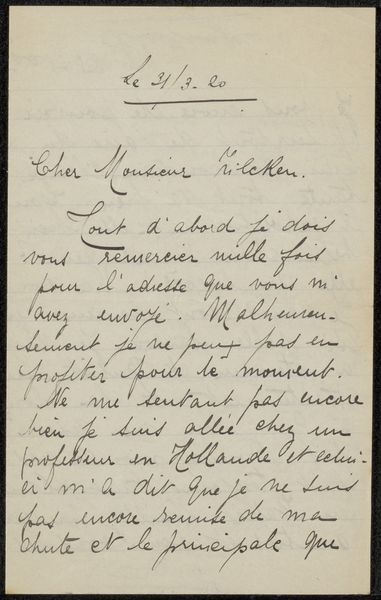 Le 31/3. 20
Cher Monsieur Zilcken.
Tout d'abord je dois
vous remercier mille fois
pour l'adresse que vous m'
avez envoyé. Malheureu-
sement je ne peux pas en
profiter pour le moment.
Ne me sentant pas encore
bien je suis allée chez un
professeur en Hollande et celui-
ci m'a dit que je ne suis
pas encore remise de ma
chute et le principale que